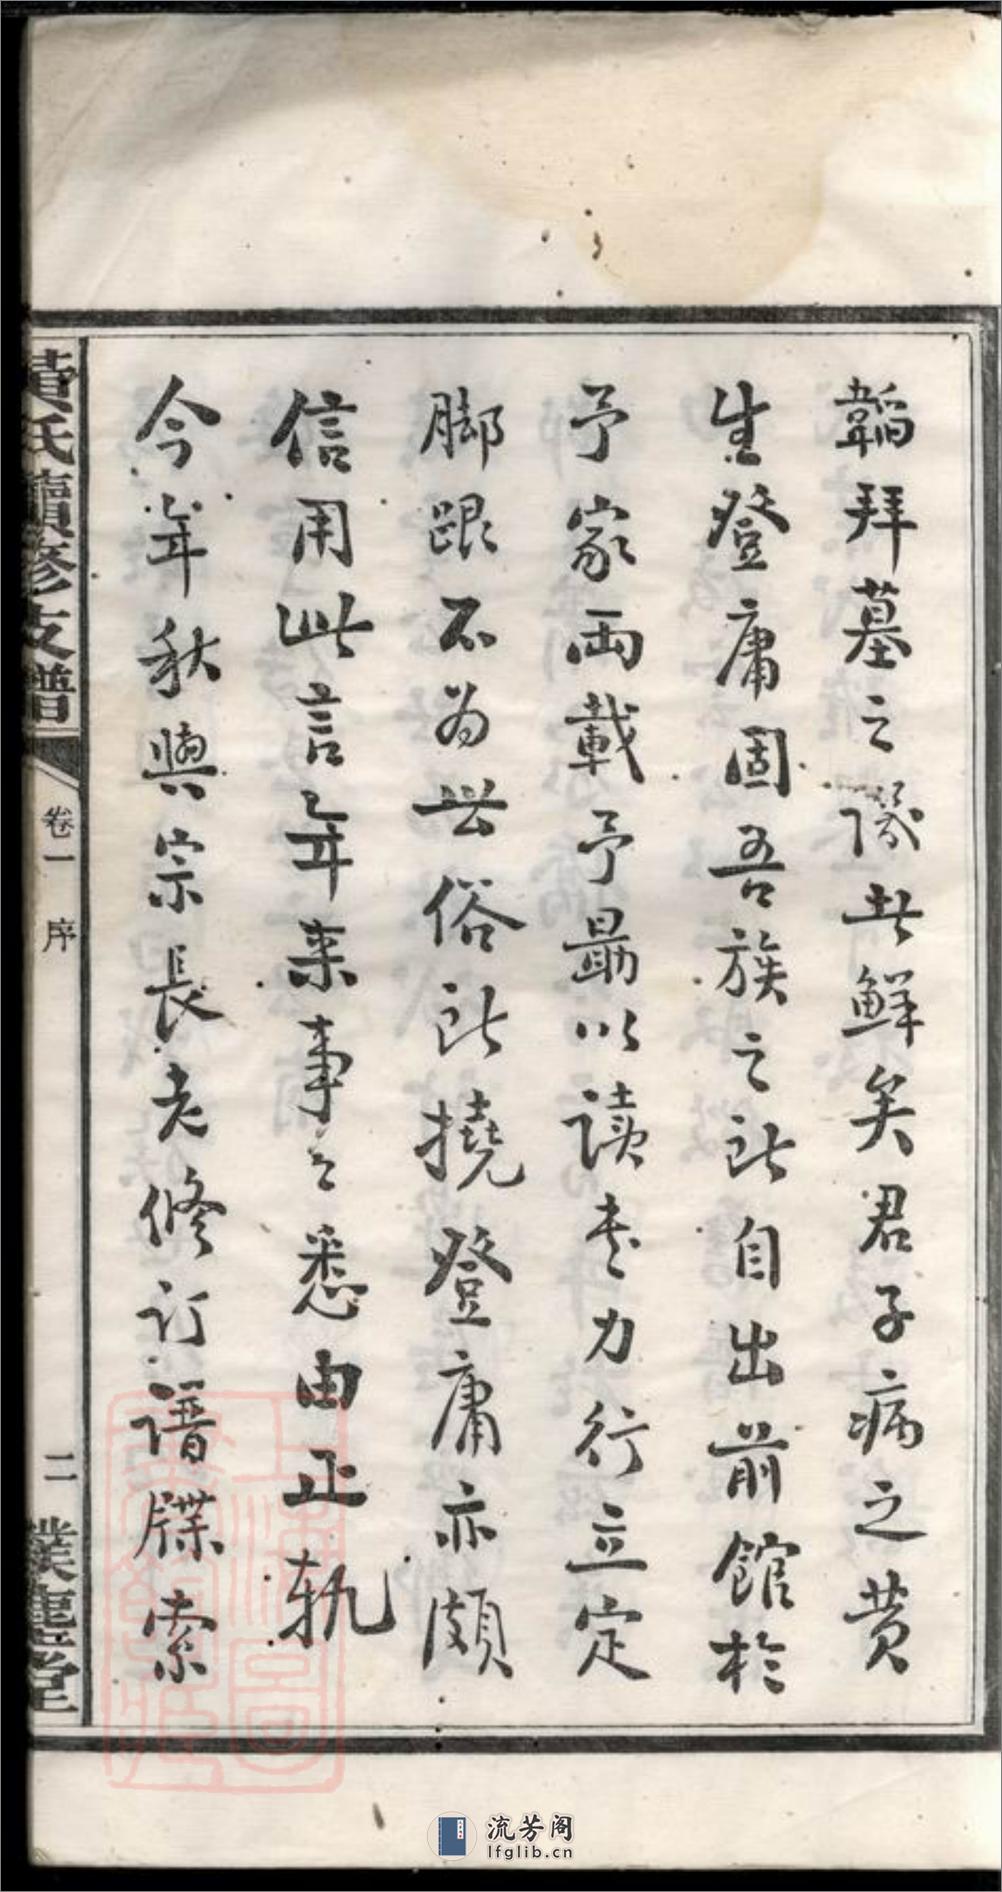 韜拜墓之譏者鮮矣君子病之黃
生登庸固吾族之能自出前館於
予家兩載予勗以讀书力行立定
脚跟不為世俗所撓登庸亦頗
信用此言年來事之悉由正軌
今年秋與宗長老修訂譜牒索
黃氏續修支譜
卷一 序
二
流芳阁
lfglib.cn